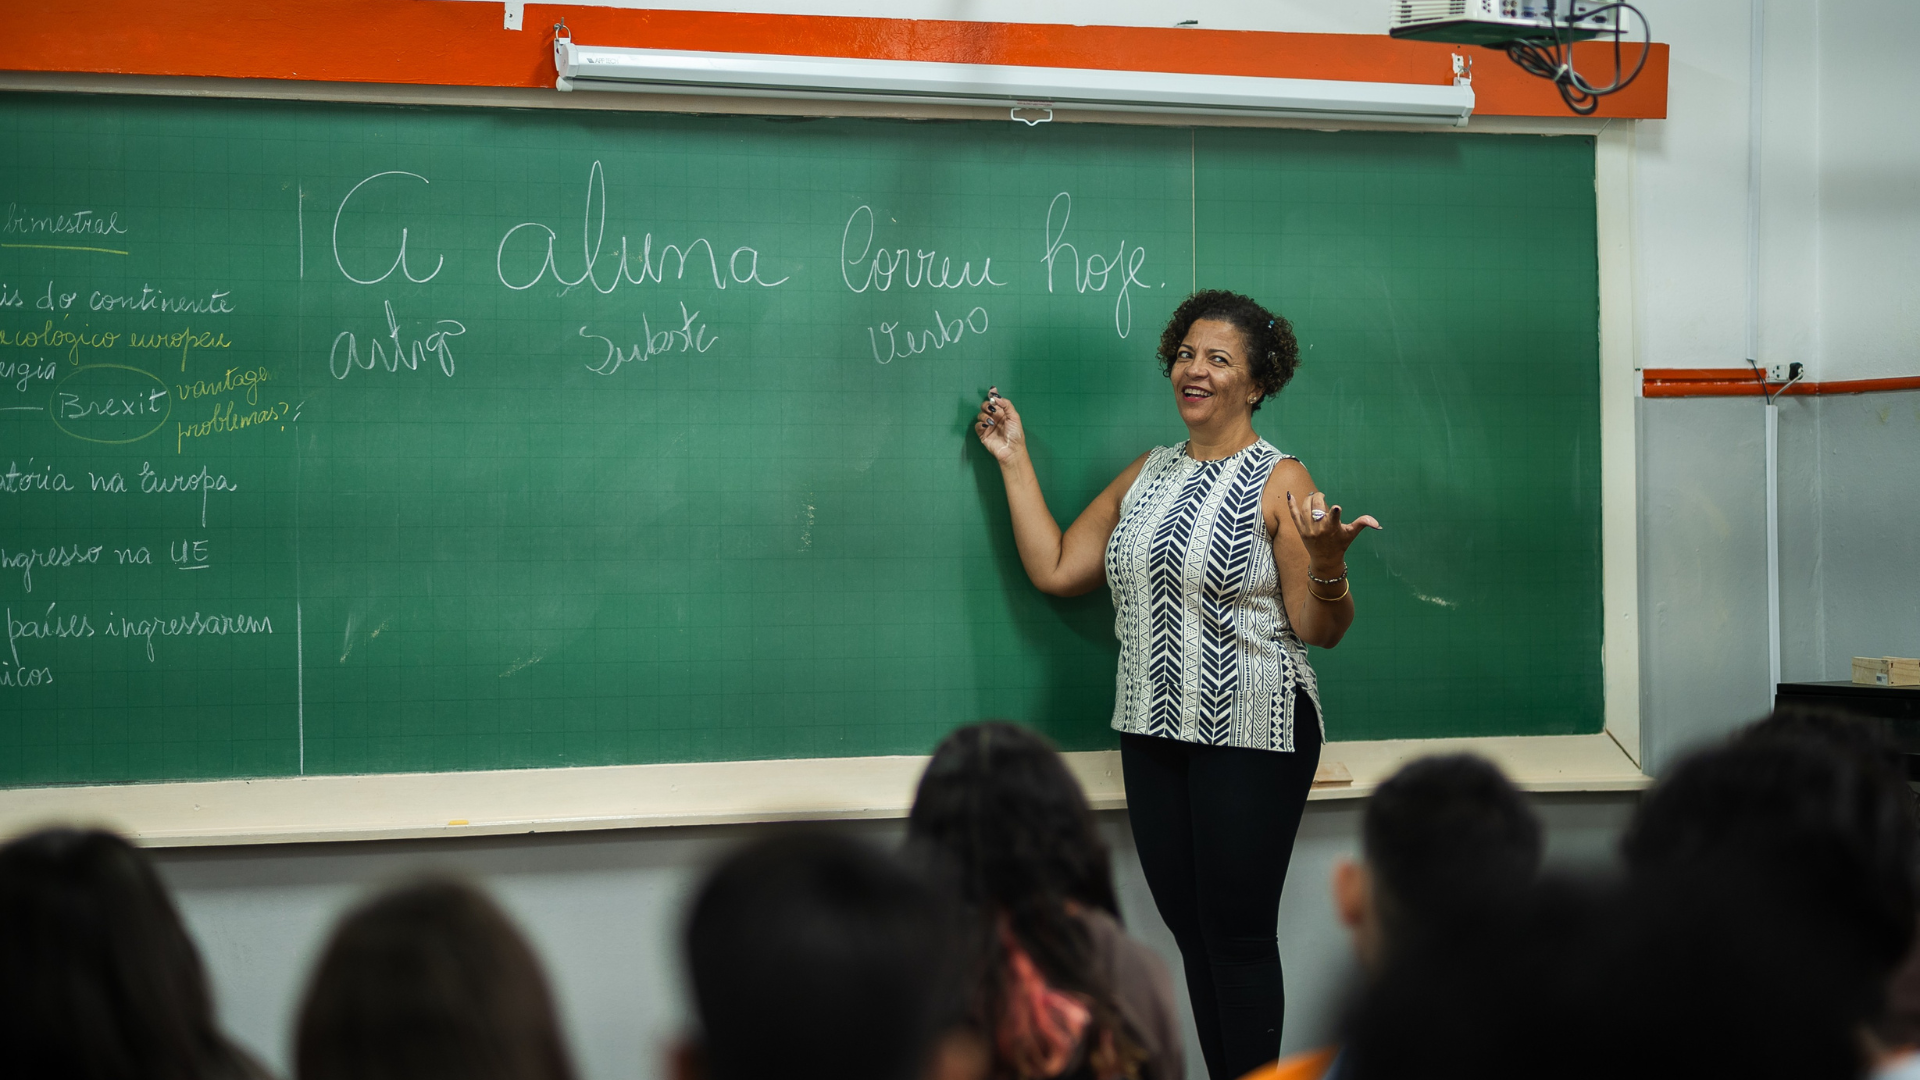 bimestral
is do continente
ecológico europeu
ergia
Brexit
vantage
problemas?
atória na Europa
ngresso na UE
países ingressarem
icos
A aluna correu hoje.
artigo substc verbo